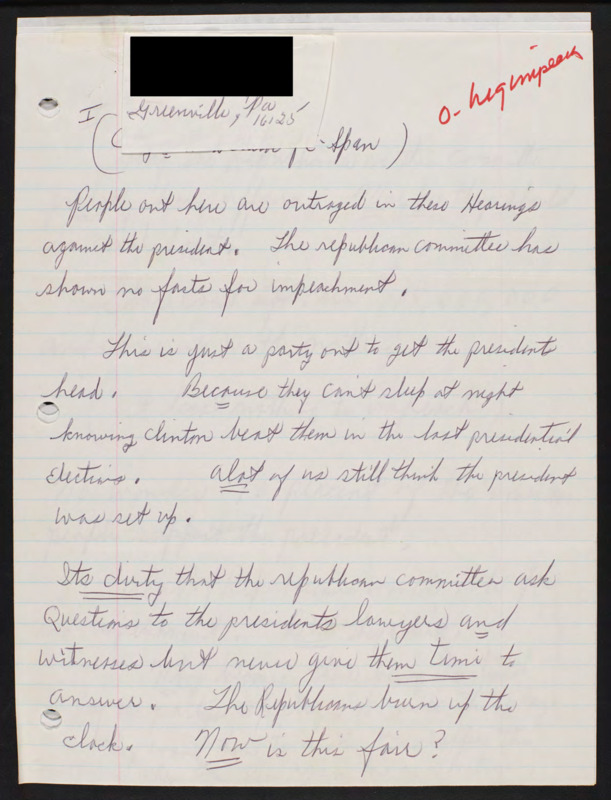 Greenville, Pa
16125
I
o- heqimpeach
( Span )
People out here are outraged in these Hearings
against the president. The republican committee has
shown no facts for impeachment.
This is just a party out to get the presidents
head. Because they can't sleep at night
knowing Clinton beat them in the last presidential
elections. alot of us still think the president
was set up.
Its dirty that the republican committee ask
Questions to the presidents lawyers and
witnesses but never give them time to
answer. The Republicans burn up the
clock. Now is this fair?